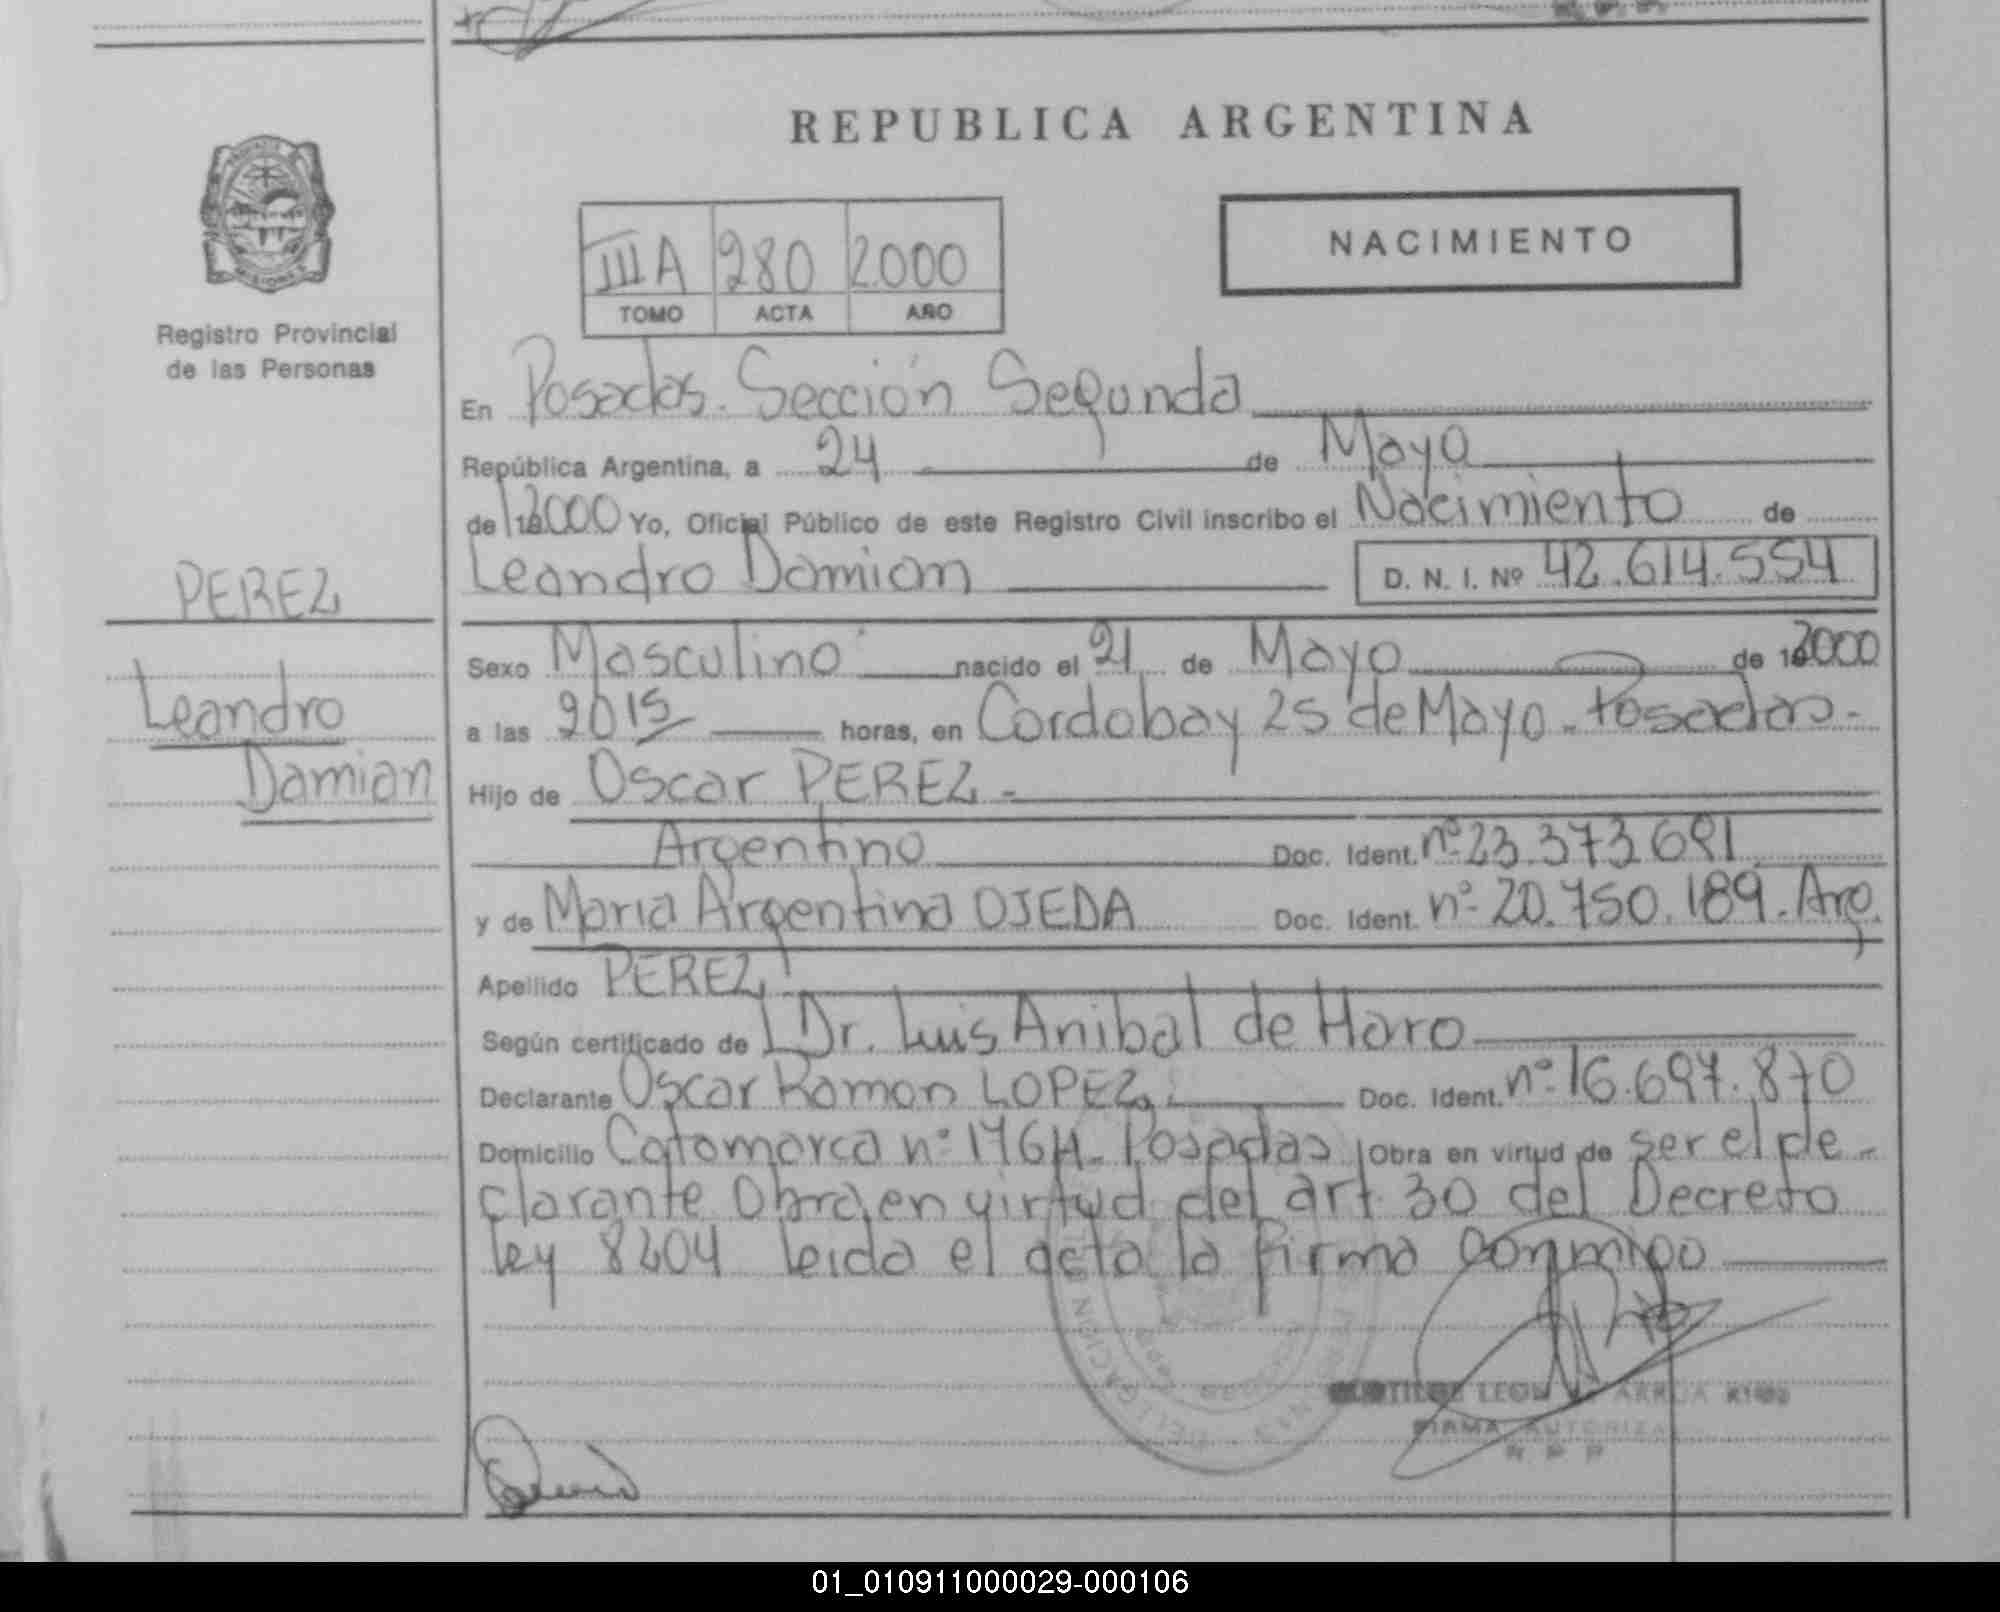 REPUBLICA ARGENTINA
NACIMIENTO
III A 280 2000
TOMO ACTA AÑO
Registro Provincial
de las Personas
En Posadas. Sección Segunda
República Argentina, a 24 de Mayo
de 2000 Yo, Oficial Público de este Registro Civil inscribo el Nacimiento de
Leandro Damian D. N. I. Nº 42.614.554
PEREZ
Leandro
Damian
Sexo Masculino nacido el 21 de Mayo de 2000
a las 2015 horas, en Cordoba y 25 de Mayo - Posadas -
Hijo de Oscar PEREZ -
Argentino Doc. Ident. nº 23.373.691
y de Maria Argentina OJEDA Doc. Ident. nº 20.750.189. Arg.
Apellido PEREZ
Según certificado de Dr. Luis Anibal de Haro
Declarante Oscar Ramon LOPEZ Doc. Ident. nº 16.697.870
Domicilio Catamarca nº 1764 - Posadas Obra en virtud de ser el de-
clarante Obra en virtud del art. 30 del Decreto
ley 8204 leida el acta la firma conmigo
FIRMA AUTORIZA
R P P
01_010911000029-000106